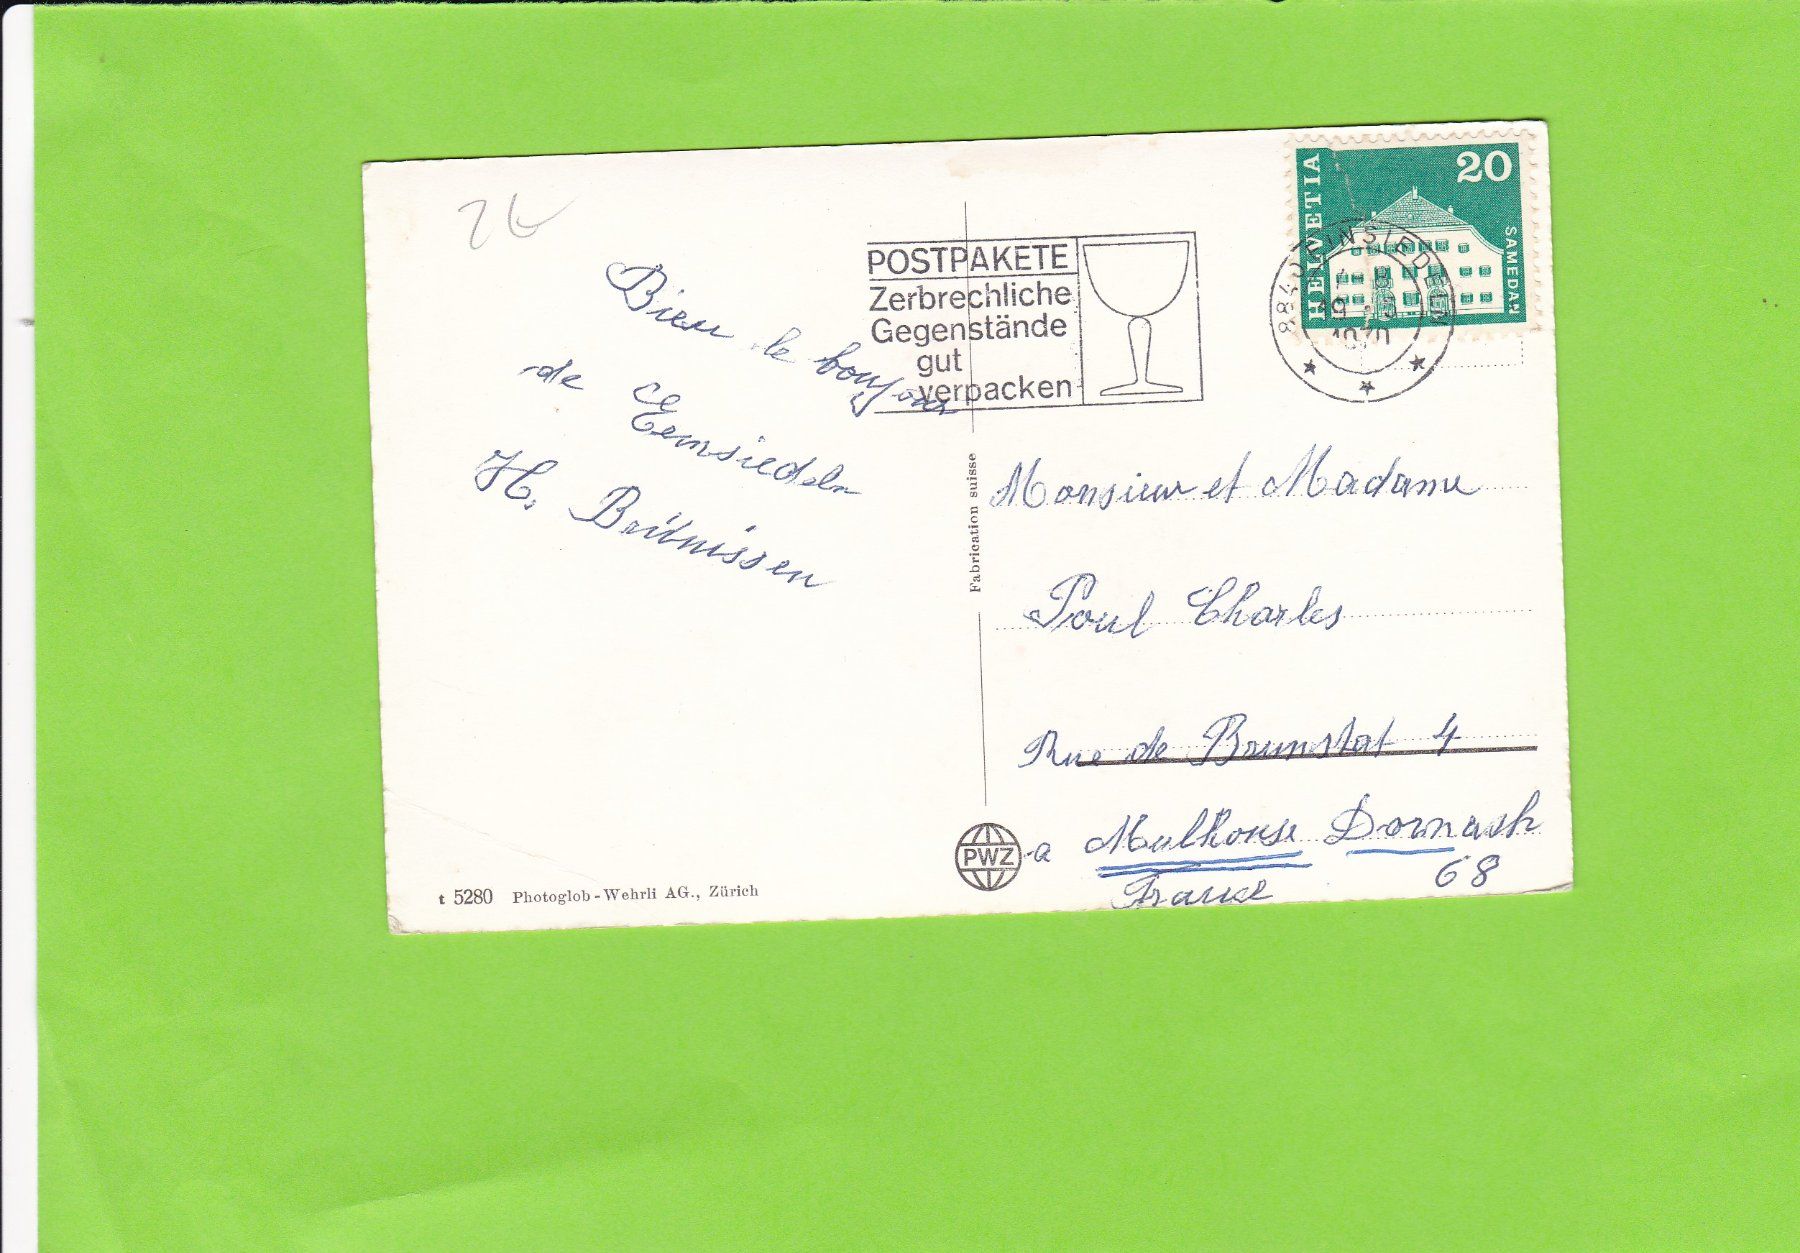 Bien le bonjour
de Eemsiedeln
H.
POSTPAKETE
Zerbrechliche
Gegenstände
gut
verpacken
HELVETIA
20
SAMEDAN
8840 EINSIEDELN
1970
Fabrication suisse
Monsieur et Madame
Poul Charles
Rue de Brunstat 4
a Mulhouse Dornach
68
France
PWZ
t 5280 Photoglob-Wehrli AG., Zürich